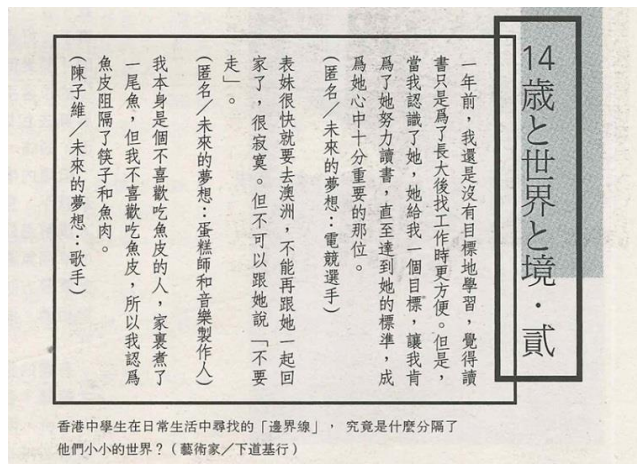 14歳と世界と境・貳
一年前，我還是沒有目標地學習，覺得讀
書只是爲了長大後找工作時更方便。但是，
當我認識了她，她給我一個目標，讓我肯
爲了她努力讀書，直至達到她的標準，成
爲她心中十分重要的那位。
（匿名／未來的夢想：電競選手）
表妹很快就要去澳洲，不能再跟她一起回
家了，很寂寞。但不可以跟她說「不要
走」。
（匿名／未來的夢想：蛋糕師和音樂製作人）
我本身是個不喜歡吃魚皮的人，家裏煮了
一尾魚，但我不喜歡吃魚皮，所以我認爲
魚皮阻隔了筷子和魚肉。
（陳子維／未來的夢想：歌手）
香港中學生在日常生活中尋找的「邊界線」，究竟是什麼分隔了
他們小小的世界？（藝術家／下道基行）